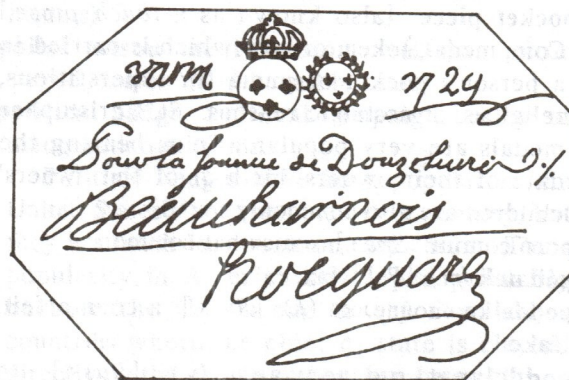 29
Pour la Somme de Douze livres
Beauharnois
Hocquart